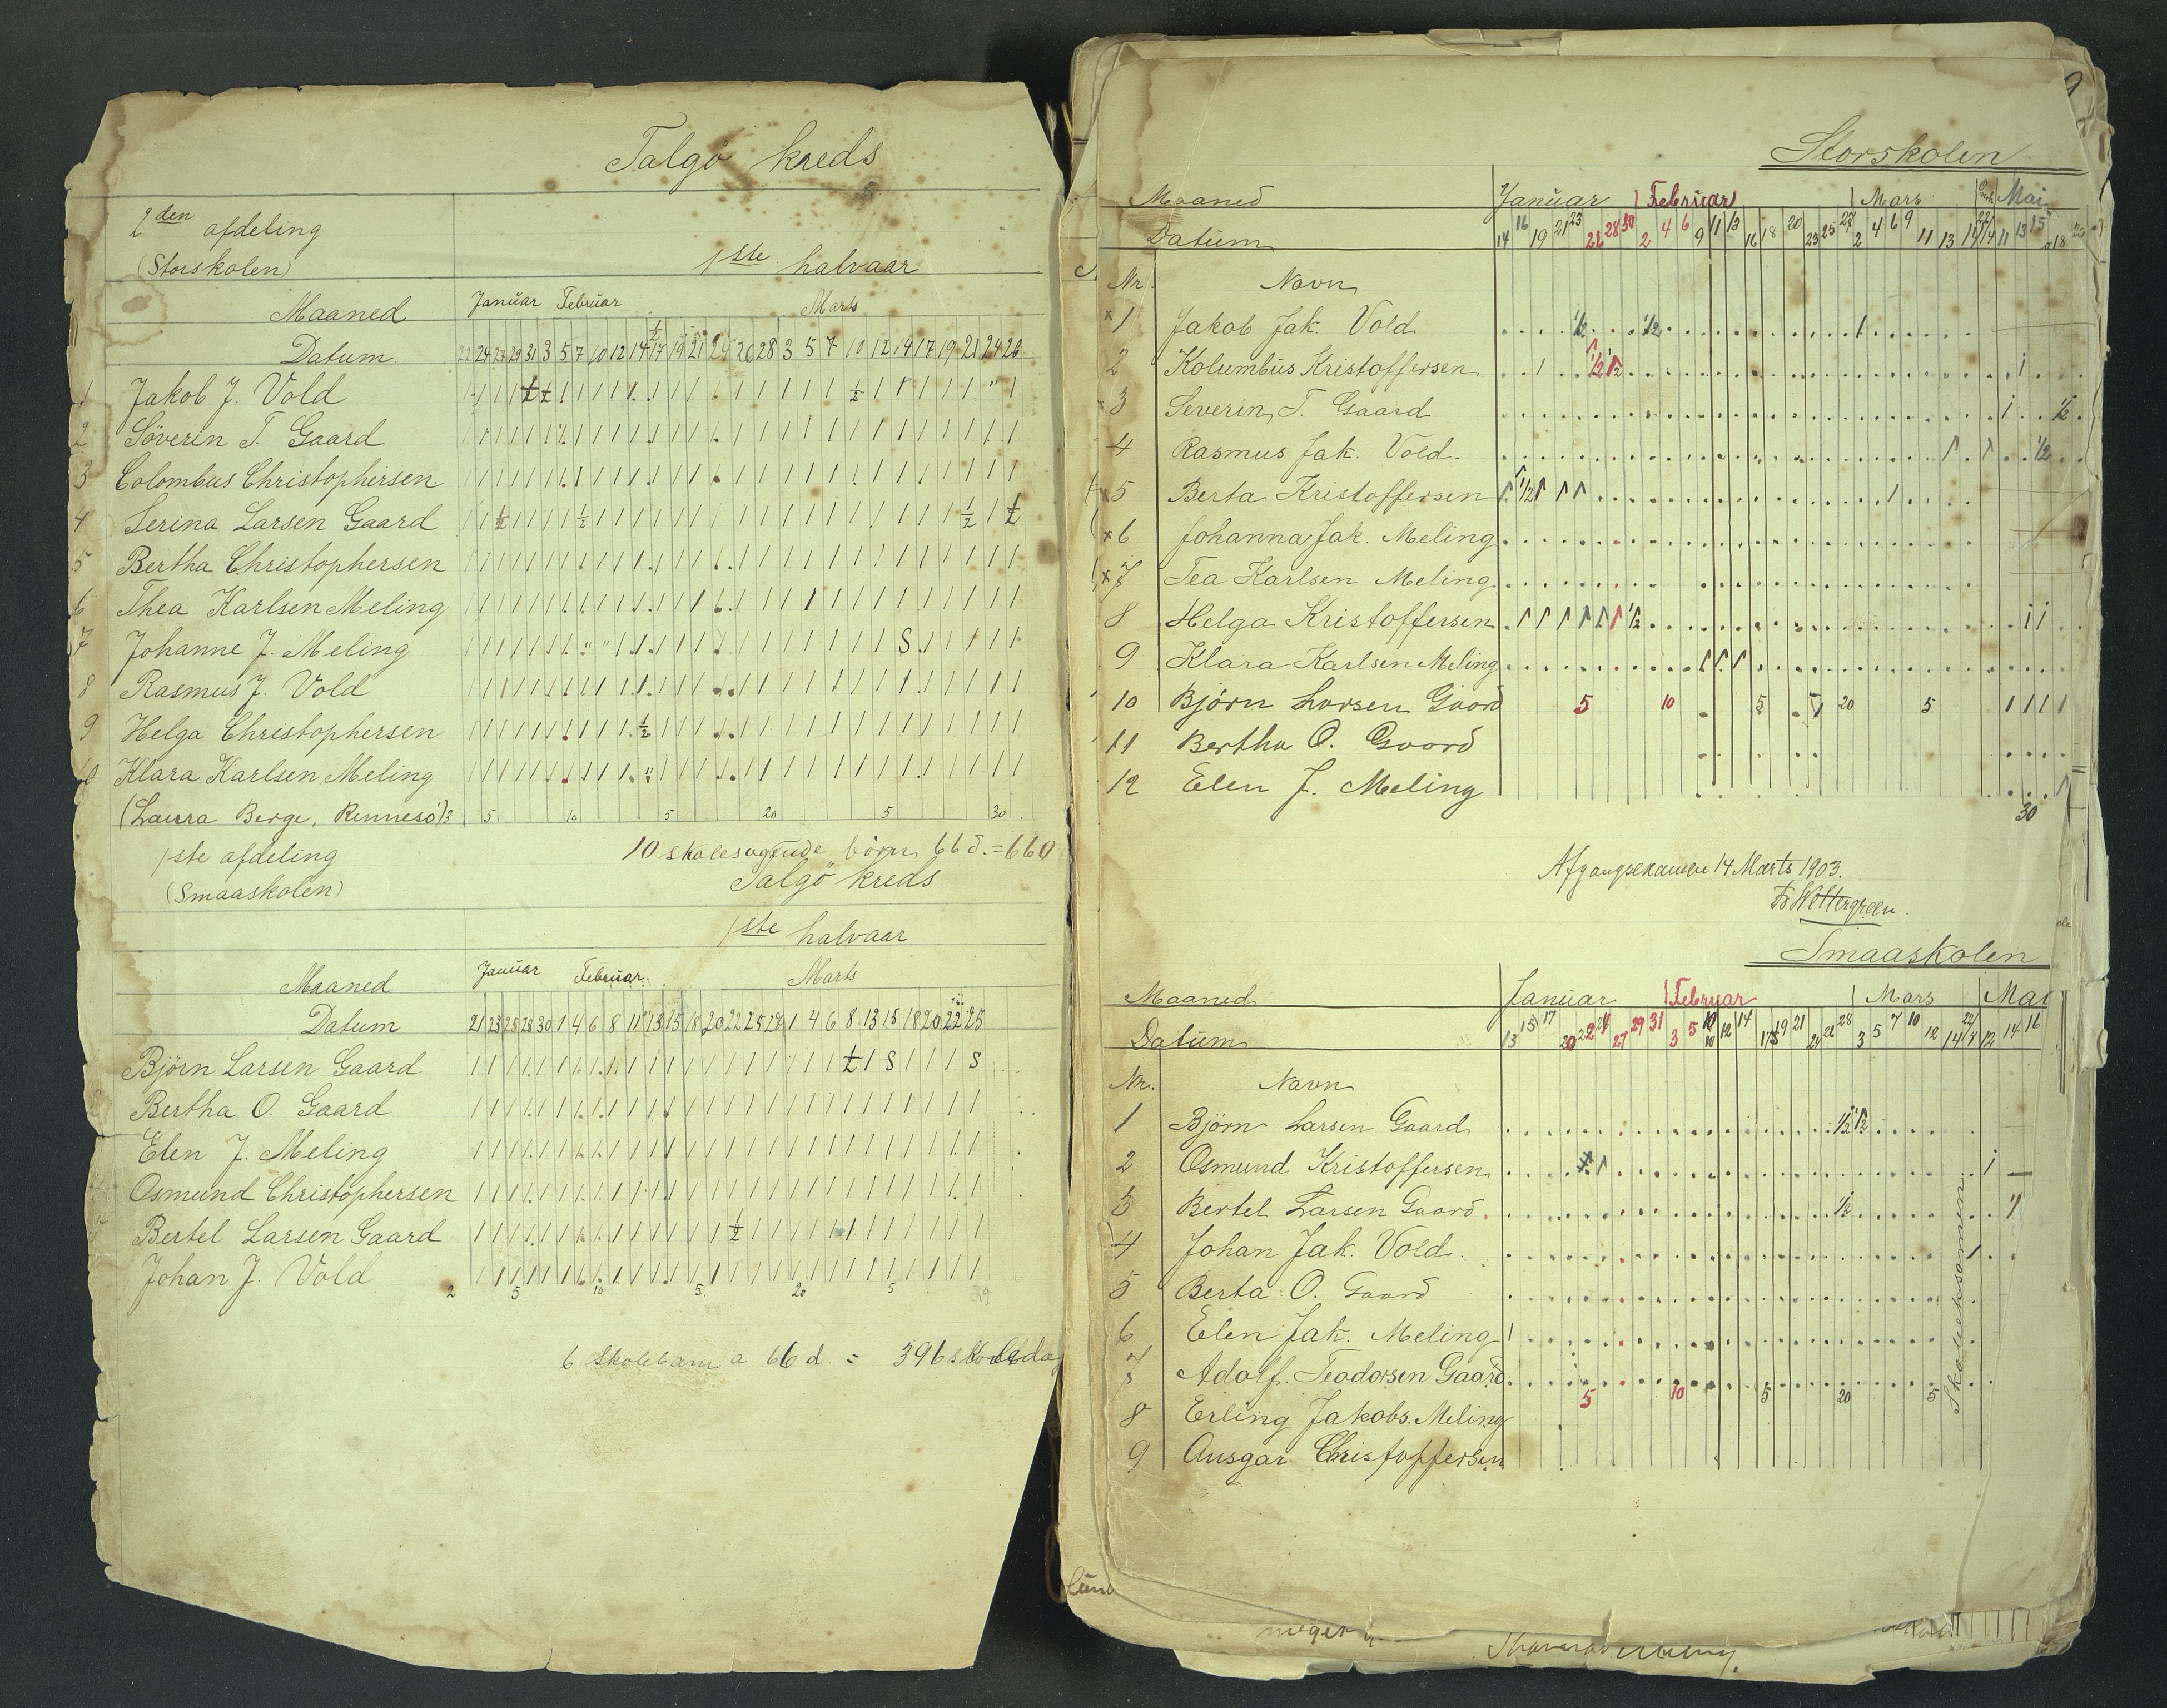 Talgö kreds
2den afdeling
(Storskolen)
1ste halvaar
Maaned Januar Februar Marts
Datum 22 24 27 29 31 3 5 7 10 12 14 17 19 21 24 26 28 3 5 7 10 12 14 17 19 21 24 26
1 Jakob J. Vold
2 Söverin T. Gaard
3 Colombus Christophersen
4 Serina Larsen Gaard
5 Bertha Christophersen
6 Thea Karlsen Meling
7 Johanne J. Meling
8 Rasmus J. Vold
9 Helga Christophersen
10 Klara Karlsen Meling
(Laura Berge, Rennesö) 3 5 10 5 20 5 30
1ste afdeling 10 skolesøgende börn 66 d. = 660
(Smaaskolen) Talgö kreds
1ste halvaar
Maaned Januar Februar Marts
Datum 21 23 25 28 30 1 4 6 8 11 13 15 18 20 22 25 27 1 4 6 8 13 15 18 20 22 25
Björn Larsen Gaard
Bertha O. Gaard
Elen J. Meling
Osmund Christophersen
Bertel Larsen Gaard
Johan J. Vold
2 5 10 5 20 5 29
6 skolebarn a 66 d. = 396
9
Storskolen
Maaned Januar Februar Mars Mai
Datum 14 16 19 21 23 26 28 30 2 4 6 9 11 13 16 18 20 23 25 27 2 4 6 9 11 13 14 22/4 11 13 15 18 20
Nr. Navn
1 Jakob Jak. Vold
2 Kolumbus Kristoffersen
3 Severin T. Gaard
4 Rasmus Jak. Vold.
5 Berta Kristoffersen
6 Johanna Jak. Meling
7 Tea Karlsen Meling
8 Helga Kristoffersen
9 Klara Karlsen Meling
10 Björn Larsen Gaard 5 10 5 20 5
11 Bertha O. Gaard
12 Elen J. Meling
30
Afgangseksamen 14 Marts 1903.
Fr Wettergreen.
Smaaskolen
Maaned Januar Februar Mars Mai
Datum 13 15 17 20 22 24 27 29 31 3 5 10 12 14 17 19 21 24 26 28 3 5 7 10 12 14 22/4 12 14 16
Nr. Navn
1 Björn Larsen Gaard
2 Osmund Kristoffersen
3 Bertel Larsen Gaard
4 Johan Jak. Vold
5 Berta O. Gaard
6 Elen Jak. Meling
7 Adolf Teodorsen Gaard
5 10 5 20 5
8 Erling Jakobs. Meling
9 Ansgar Christoffersen